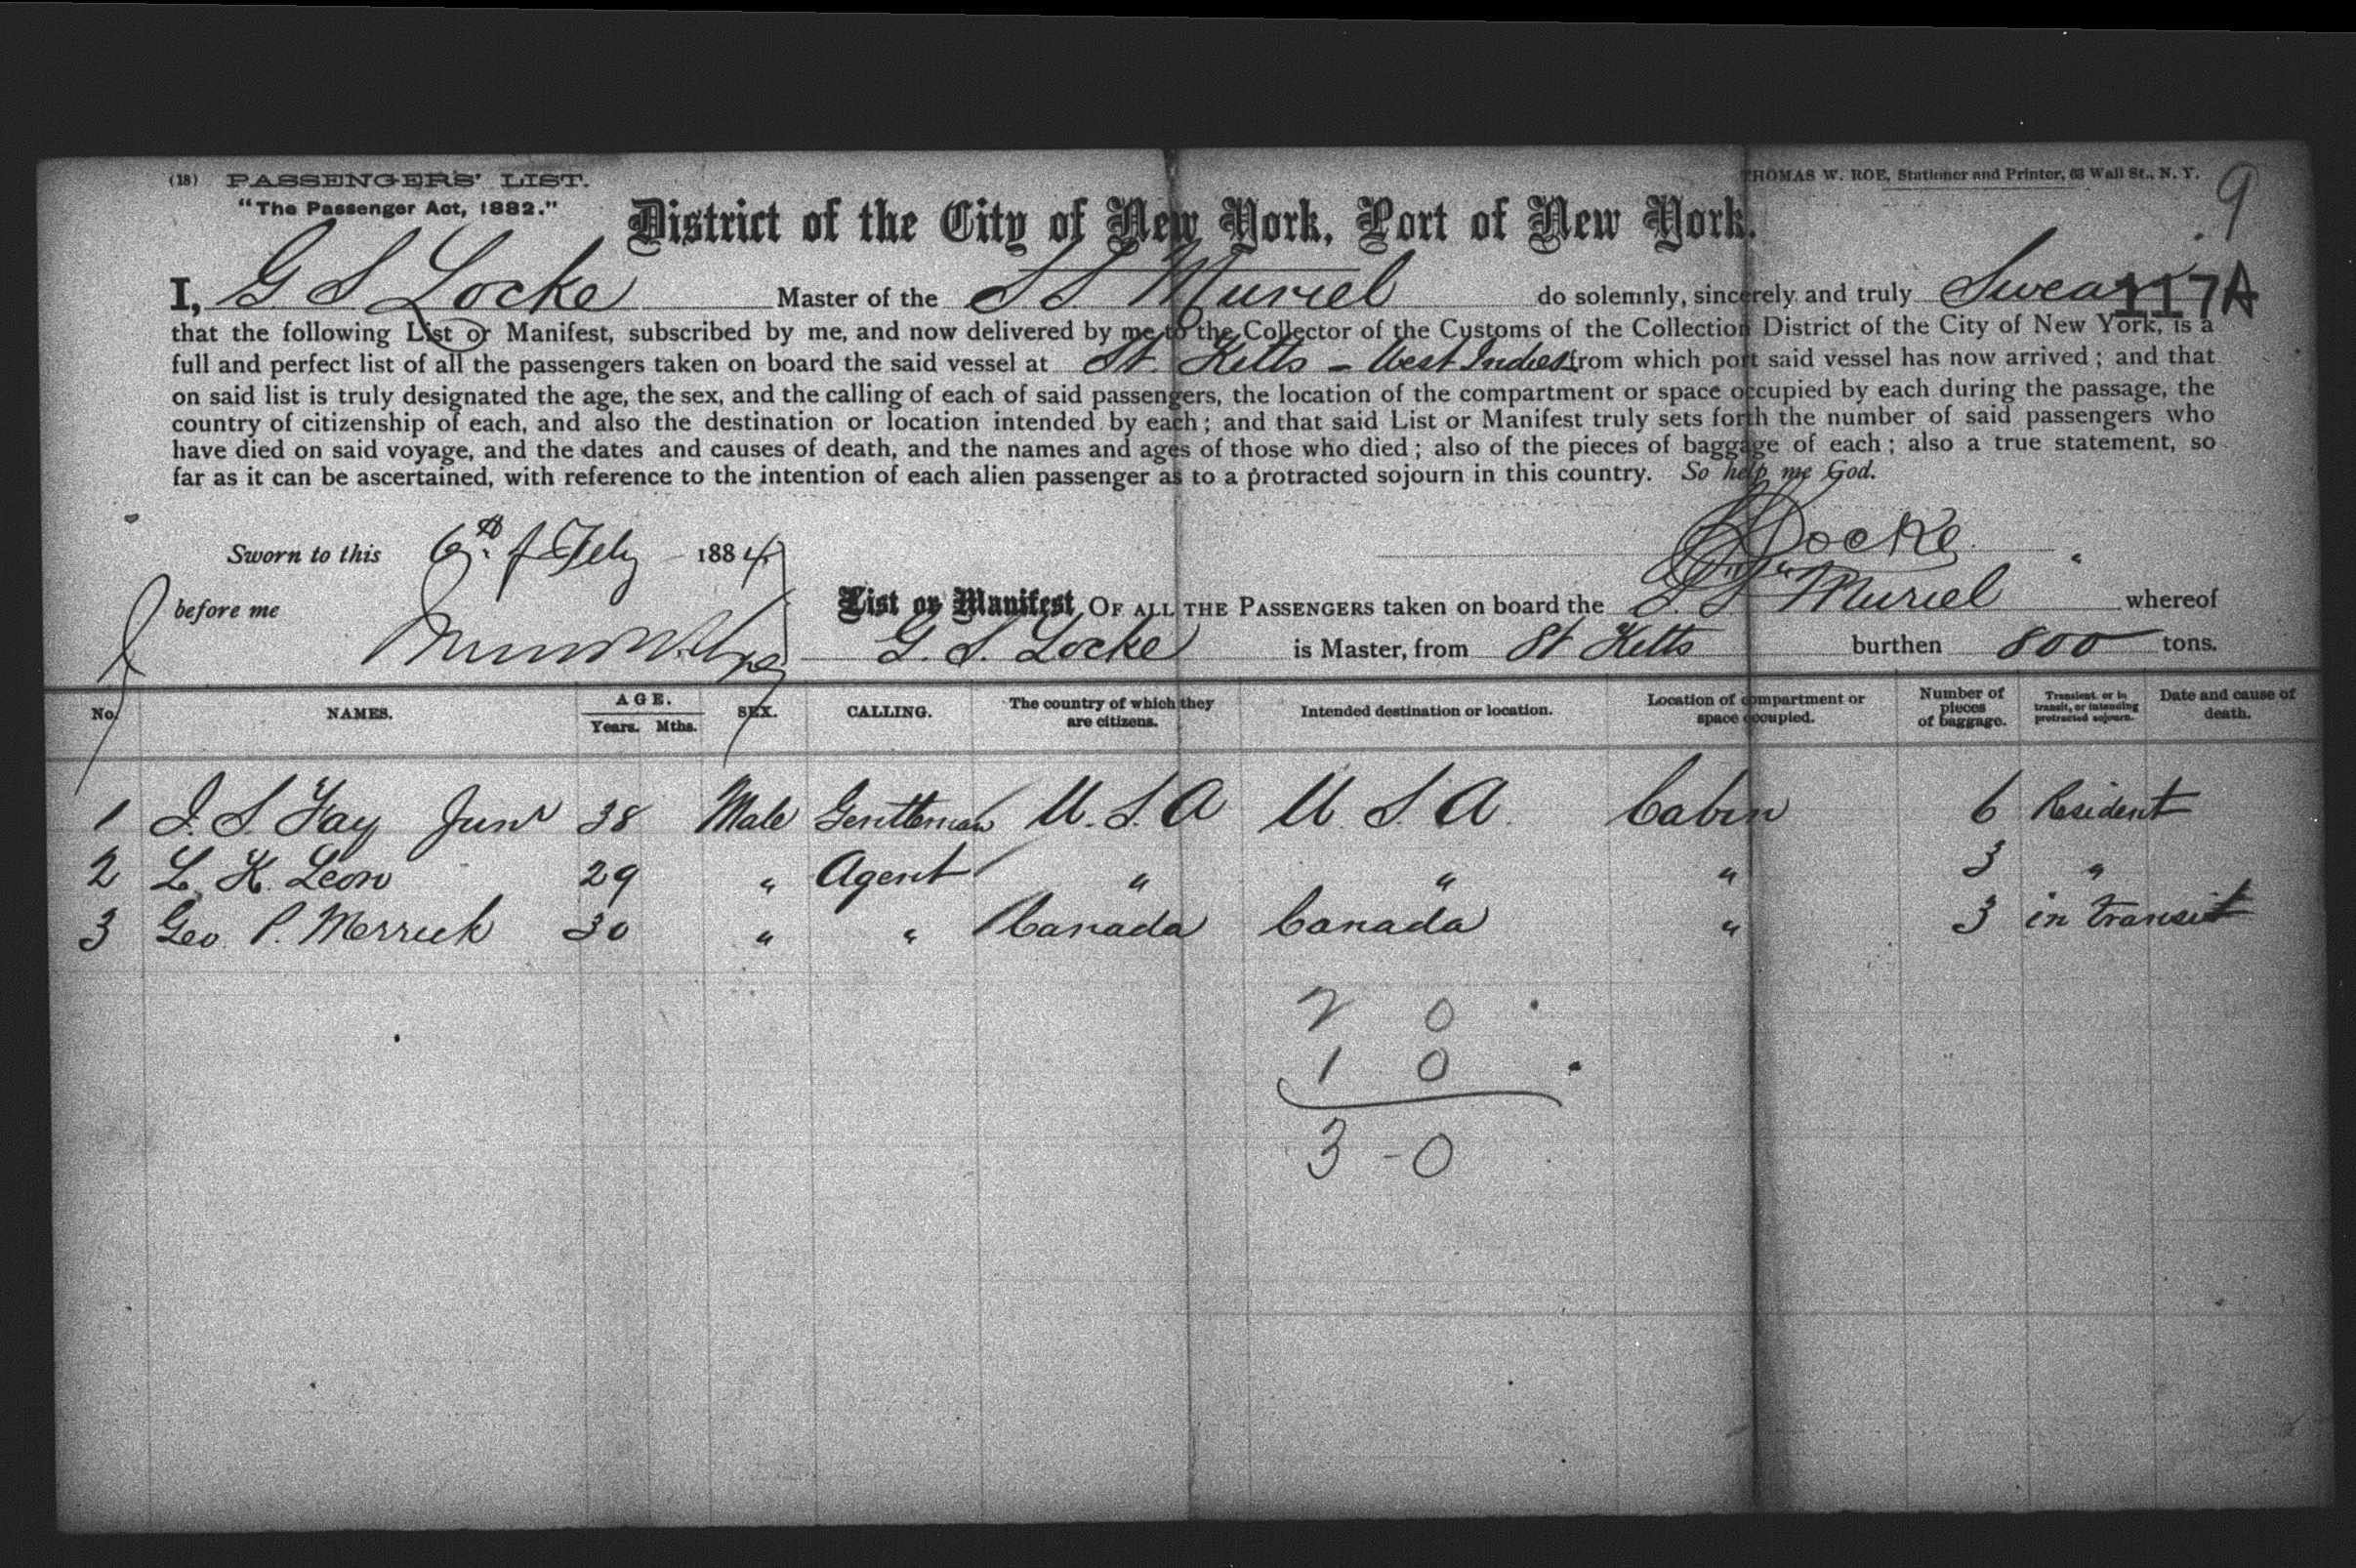 (18) PASSENGERS' LIST.
"The Passenger Act, 1882."
THOMAS W. ROE, Stationer and Printer, 63 Wall St., N. Y.
9
District of the City of New York, Port of New York.
117A
I, G S Locke Master of the S S Muriel do solemnly, sincerely and truly Swear
that the following List or Manifest, subscribed by me, and now delivered by me to the Collector of the Customs of the Collection District of the City of New York, is a
full and perfect list of all the passengers taken on board the said vessel at St. Kitts - West Indies from which port said vessel has now arrived; and that
on said list is truly designated the age, the sex, and the calling of each of said passengers, the location of the compartment or space occupied by each during the passage, the
country of citizenship of each, and also the destination or location intended by each; and that said List or Manifest truly sets forth the number of said passengers who
have died on said voyage, and the dates and causes of death, and the names and ages of those who died; also of the pieces of baggage of each; also a true statement, so
far as it can be ascertained, with reference to the intention of each alien passenger as to a protracted sojourn in this country. So help me God.
Sworn to this 6th of Feby 1884 Locke
before me
List or Manifest OF ALL THE PASSENGERS taken on board the S. S Muriel whereof
G. S. Locke is Master, from St Kitts burthen 800 tons.
No. NAMES. AGE. Years. Mths. SEX. CALLING. The country of which they are citizens. Intended destination or location. Location of compartment or space occupied. Number of pieces of baggage. Transient, or in transit, or intending protracted sojourn. Date and cause of death.
1 J. S. Fay Junr 38 Male Gentleman U. S. A U. S A. Cabin 6 Resident
2 L. K. Leon 29 " Agent " " " 3 "
3 Geo P. Merrick 30 " " Canada Canada " 3 in transit
2 0
1 0
3 - 0